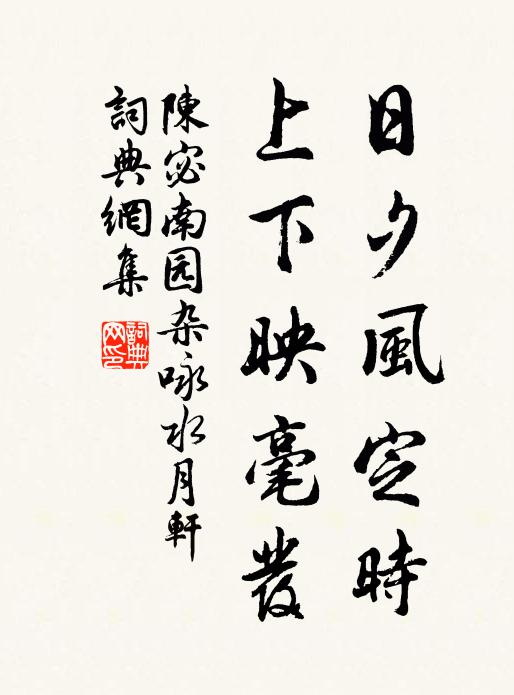 日夕風定時
上下映毫發
陳宓南园杂咏水月軒
詞典網集
詞典网印